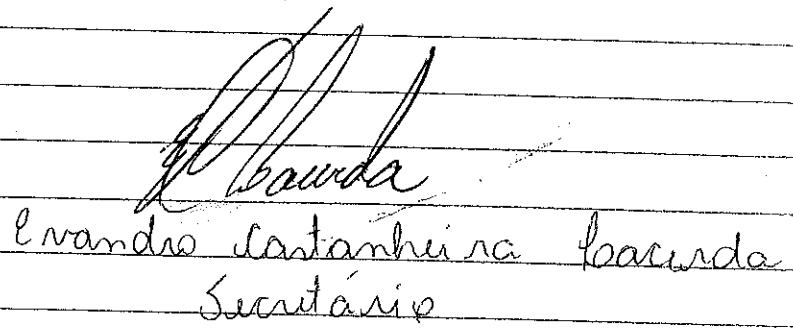 Lacerda
Evandro Castanheira Lacerda
Secretário